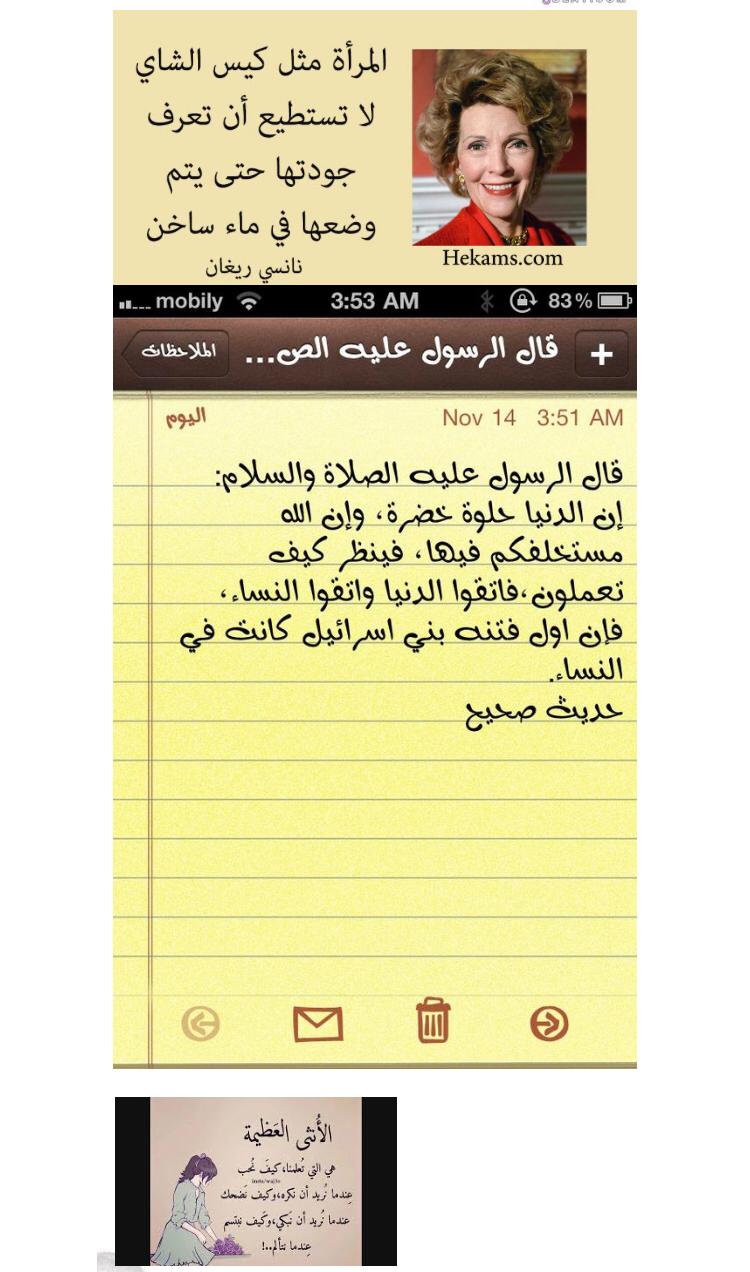 المرأة مثل كيس الشاي
لا تستطيع أن تعرف
جودتها حتى يتم
وضعها في ماء ساخن
نانسي ريغان
Hekams.com
mobily 3:53 AM 83%
الملاحظات قال الرسول عليه الص... +
اليوم Nov 14 3:51 AM
قال الرسول عليه الصلاة والسلام:
إن الدنيا حلوة خضرة، وإن الله
مستخلفكم فيها، فينظر كيف
تعملون،فاتقوا الدنيا واتقوا النساء،
فإن اول فتنه بني اسرائيل كانت في
النساء.
حديث صحيح
الأُنثى العَظيمة
هي التي تُعلمنا،كيفَ نُحب
عِندما نُريد أن نكره،وكيف نَضحك
عندما نُريد أن نَبكي،وكَيف نبتسم
عِندما نتألم..!